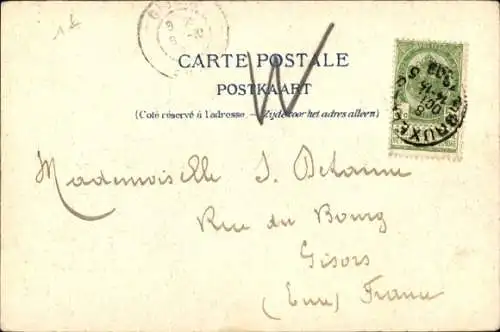 CARTE POSTALE
POSTKAART
(Coté réservé à l'adresse. — Zijde voor het adres alleen)
Mademoiselle J. Delarue
Rue du Bourg
Gisors
(Eure) France